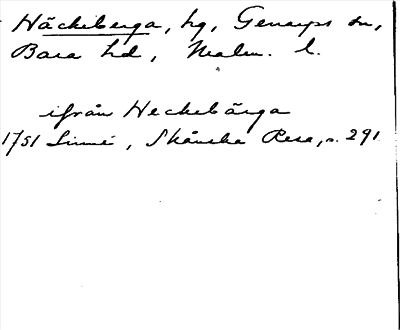 Häckeberga, hg, Genarps sn,
Bara hd, Malm. l.
ifrån Heckebärga
1751 Linné, Skånska Resa, s. 291